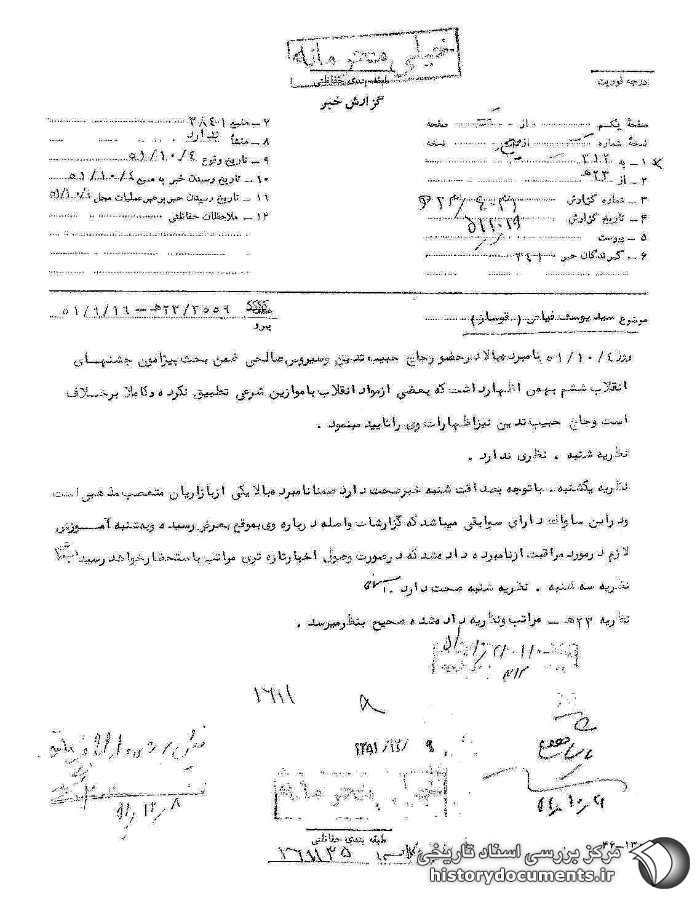 خیلی محرمانه
طبقه بندی حفاظتی
درجه فوریت
گزارش خبر
صفحهٔ یکم از صفحه
نسخهٔ شماره از نسخه
۱ – به ۳۱۲
۲ – از ۲۳ﻫ
۳ – شماره گزارش
۴ – تاریخ گزارش
۵ – پیوست
۶ – گیرندگان خبر ۳۴۱
۷ – منبع ۳۸۴۰۱
۸ – منشأ ندارد
۹ – تاریخ وقوع ۵۱/۱۰/۴
۱۰ – تاریخ رسیدن خبر به منبع ۵۱/۱۰/۴
۱۱ – تاریخ رسیدن خبر برهبر عملیات محل ۵۱/۱۰/۴
۱۲ – ملاحظات حفاظتی
موضوع سید یوسف فیاض (قوساز)
پیرو ۲۳/۳۵۵۹ﻫ – ۵۱/۹/۱۶
روز ۵۱/۱۰/۴ نامبرده بالا در حضور حاج حبیب تدین و سیروس صالحی ضمن بحث پیرامون جشنهای
انقلاب ششم بهمن اظهار داشت که بعضی از مواد انقلاب با موازین شرعی تطبیق نکرده و کاملا برخلاف
است و حاج حبیب تدین نیز اظهارات وی را تایید مینمود .
نظریه شنبه . نظری ندارد .
نظریه یکشنبه . با توجه بصداقت شنبه خبر صحت دارد ضمنا نامبرده بالا یکی از بازاریان متعصب مذهبی است
و در این ساواک دارای سوابقی میباشد که گزارشات واصله درباره وی بموقع بعرض رسیده و بشنبه آموزش
لازم در مورد مراقبت از نامبرده داده شد که در صورت وصول اخبار تازه تری مراتب باستحضار خواهد رسید
نظریه سه شنبه . نظریه شنبه صحت دارد .
نظریه ۲۳ﻫ – مراتب و نظریه داده شده صحیح بنظر میرسد .
۱۶۱۱
خیلی محرمانه
طبقه بندی حفاظتی
مرکز بررسی اسناد تاریخی
historydocuments.ir